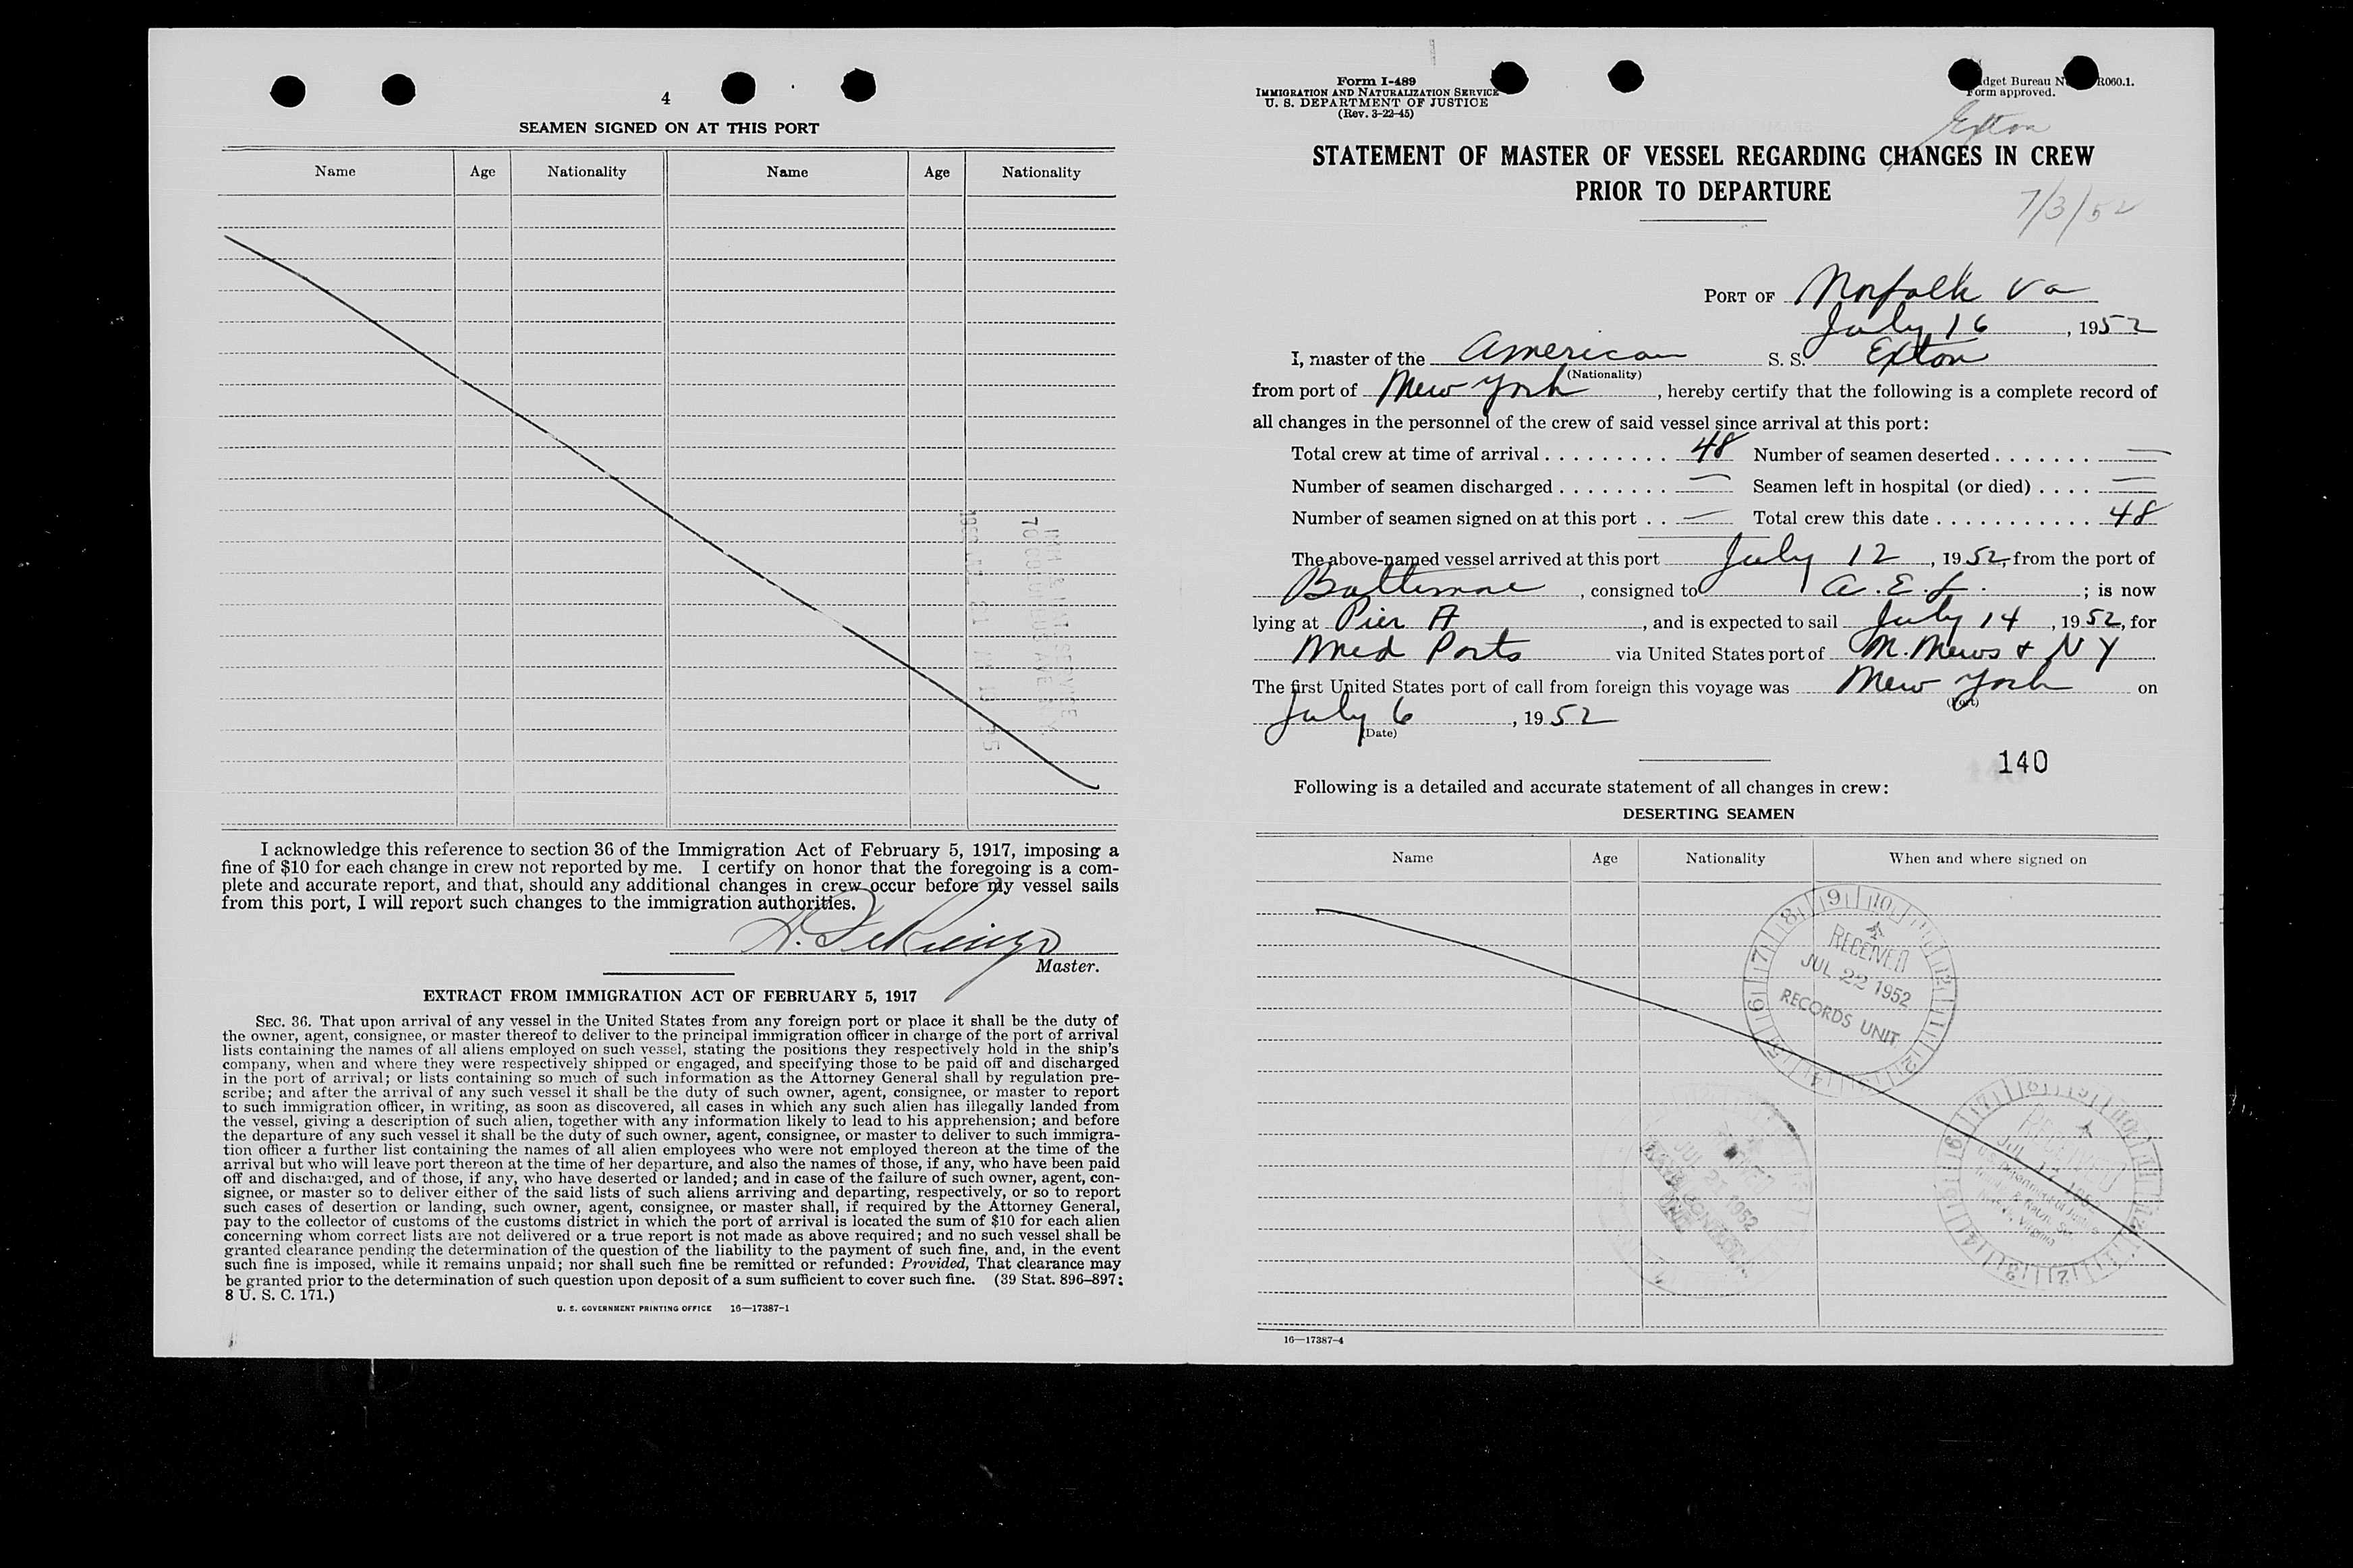 4
SEAMEN SIGNED ON AT THIS PORT
Name Age Nationality Name Age Nationality
I acknowledge this reference to section 36 of the Immigration Act of February 5, 1917, imposing a
fine of $10 for each change in crew not reported by me. I certify on honor that the foregoing is a com-
plete and accurate report, and that, should any additional changes in crew occur before my vessel sails
from this port, I will report such changes to the immigration authorities.
Master.
EXTRACT FROM IMMIGRATION ACT OF FEBRUARY 5, 1917
SEC. 36. That upon arrival of any vessel in the United States from any foreign port or place it shall be the duty of
the owner, agent, consignee, or master thereof to deliver to the principal immigration officer in charge of the port of arrival
lists containing the names of all aliens employed on such vessel, stating the positions they respectively hold in the ship's
company, when and where they were respectively shipped or engaged, and specifying those to be paid off and discharged
in the port of arrival; or lists containing so much of such information as the Attorney General shall by regulation pre-
scribe; and after the arrival of any such vessel it shall be the duty of such owner, agent, consignee, or master to report
to such immigration officer, in writing, as soon as discovered, all cases in which any such alien has illegally landed from
the vessel, giving a description of such alien, together with any information likely to lead to his apprehension; and before
the departure of any such vessel it shall be the duty of such owner, agent, consignee, or master to deliver to such immigra-
tion officer a further list containing the names of all alien employees who were not employed thereon at the time of the
arrival but who will leave port thereon at the time of her departure, and also the names of those, if any, who have been paid
off and discharged, and of those, if any, who have deserted or landed; and in case of the failure of such owner, agent, con-
signee, or master so to deliver either of the said lists of such aliens arriving and departing, respectively, or so to report
such cases of desertion or landing, such owner, agent, consignee, or master shall, if required by the Attorney General,
pay to the collector of customs of the customs district in which the port of arrival is located the sum of $10 for each alien
concerning whom correct lists are not delivered or a true report is not made as above required; and no such vessel shall be
granted clearance pending the determination of the question of the liability to the payment of such fine, and, in the event
such fine is imposed, while it remains unpaid; nor shall such fine be remitted or refunded: Provided, That clearance may
be granted prior to the determination of such question upon deposit of a sum sufficient to cover such fine. (39 Stat. 896–897;
8 U. S. C. 171.)
U. S. GOVERNMENT PRINTING OFFICE 16—17387-1
Form I-489
IMMIGRATION AND NATURALIZATION SERVICE
U. S. DEPARTMENT OF JUSTICE
(Rev. 3-22-45)
dget Bureau N R060.1.
Form approved.
Exton
STATEMENT OF MASTER OF VESSEL REGARDING CHANGES IN CREW
PRIOR TO DEPARTURE
7/3/52
PORT OF Norfolk Va
July 16, 1952
I, master of the American S. S. Exton
(Nationality)
from port of New York, hereby certify that the following is a complete record of
all changes in the personnel of the crew of said vessel since arrival at this port:
Total crew at time of arrival . . . . . . . . . 48 Number of seamen deserted . . . . . . . —
Number of seamen discharged . . . . . . . . — Seamen left in hospital (or died) . . . . —
Number of seamen signed on at this port . . — Total crew this date . . . . . . . . . . . 48
The above-named vessel arrived at this port July 12, 1952, from the port of
Baltimore, consigned to A. E. L.; is now
lying at Pier A, and is expected to sail July 14, 1952, for
Med Ports via United States port of N. News & NY
The first United States port of call from foreign this voyage was New York on
(Port)
July 6, 1952
(Date)
140
Following is a detailed and accurate statement of all changes in crew:
DESERTING SEAMEN
Name Age Nationality When and where signed on
RECEIVED
JUL 22 1952
RECORDS UNIT
JUL 21 1952
RECEIVED
16—17387-4